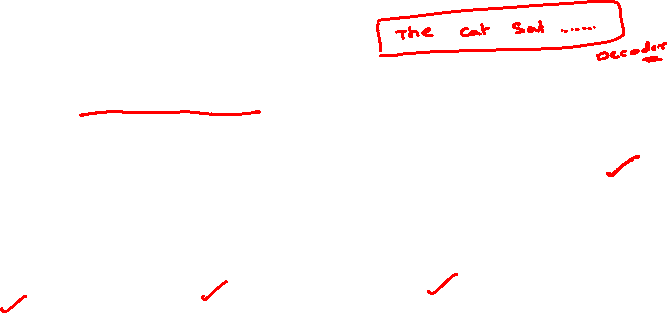 The cat sat ......
Decoder